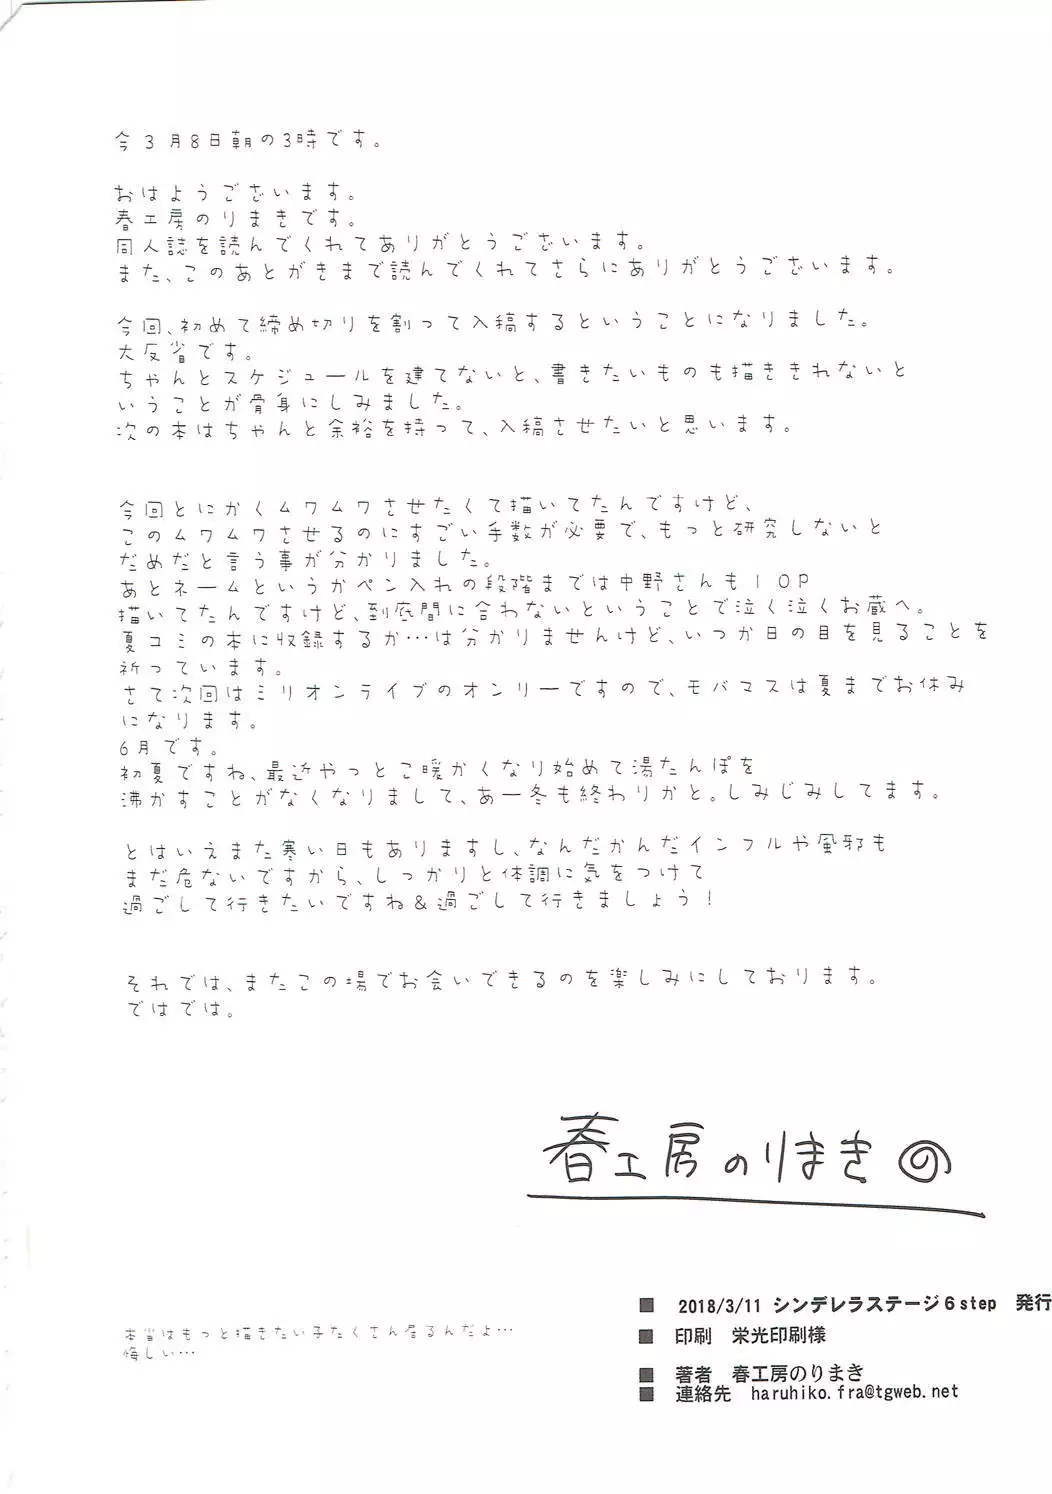 今3月8日朝の3時です。
おはようございます。
春工房のりまきです。
同人誌を読んでくれてありがとうございます。
また、このあとがきまで読んでくれてさらにありがとうございます。
今回、初めて締め切りを割って入稿するということになりました。
大反省です。
ちゃんとスケジュールを建てないと、書きたいものも描ききれないと
いうことが骨身にしみました。
次の本はちゃんと余裕を持って、入稿させたいと思います。
今回とにかくムワムワさせたくて描いてたんですけど、
このムワムワさせるのにすごい手数が必要で、もっと研究しないと
だめだと言う事が分かりました。
あとネームというかペン入れの段階までは中野さんも10P
描いてたんですけど、到底間に合わないということで泣く泣くお蔵へ。
夏コミの本に収録するか…は分かりませんけど、いつか日の目を見ることを
祈っています。
さて次回はミリオンライブのオンリーですので、モバマスは夏までお休み
になります。
6月です。
初夏ですね、最近やっとこ暖かくなり始めて湯たんぽを
沸かすことがなくなりまして、あー冬も終わりかと。しみじみしてます。
とはいえまた寒い日もありますし、なんだかんだインフルや風邪も
まだ危ないですから、しっかりと体調に気をつけて
過ごして行きたいですね＆過ごして行きましょう！
それでは、またこの場でお会いできるのを楽しみにしております。
ではでは。
春工房のりまき の
本当はもっと描きたい子たくさん居るんだよ…
悔しい…
■ 2018/3/11 シンデレラステージ6step 発行
■ 印刷 栄光印刷様
■ 著者 春工房のりまき
■ 連絡先 haruhiko.fra@tgweb.net